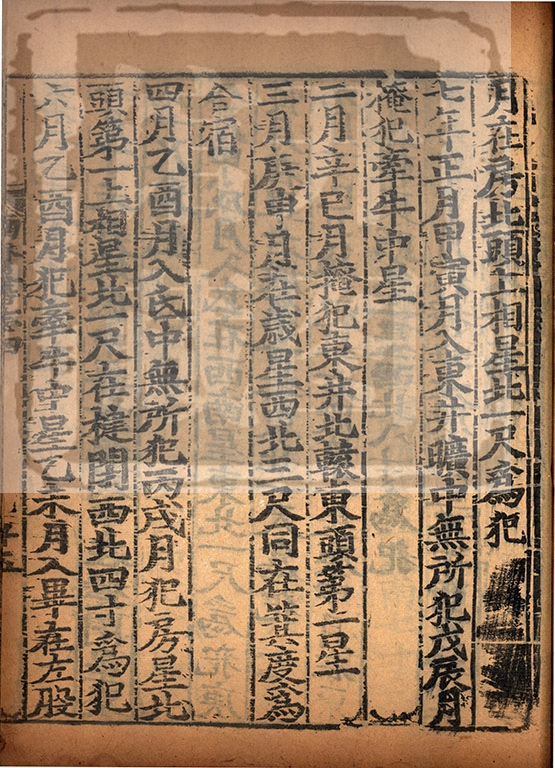 月在房北頭上相星北一尺爲犯
七年正月甲寅月入東井曠中無所犯戊辰月
掩犯牽牛中星
二月辛巳月掩犯東井北轅東頭第二星
三月庚申月在歲星西北三尺同在箕度爲
合宿
四月乙酉月入氐中無所犯丙戌月犯房星北
頭第一上相星北一尺在楗閉西北四寸爲犯
六月乙酉月犯牽牛中星乙未月入畢在左股